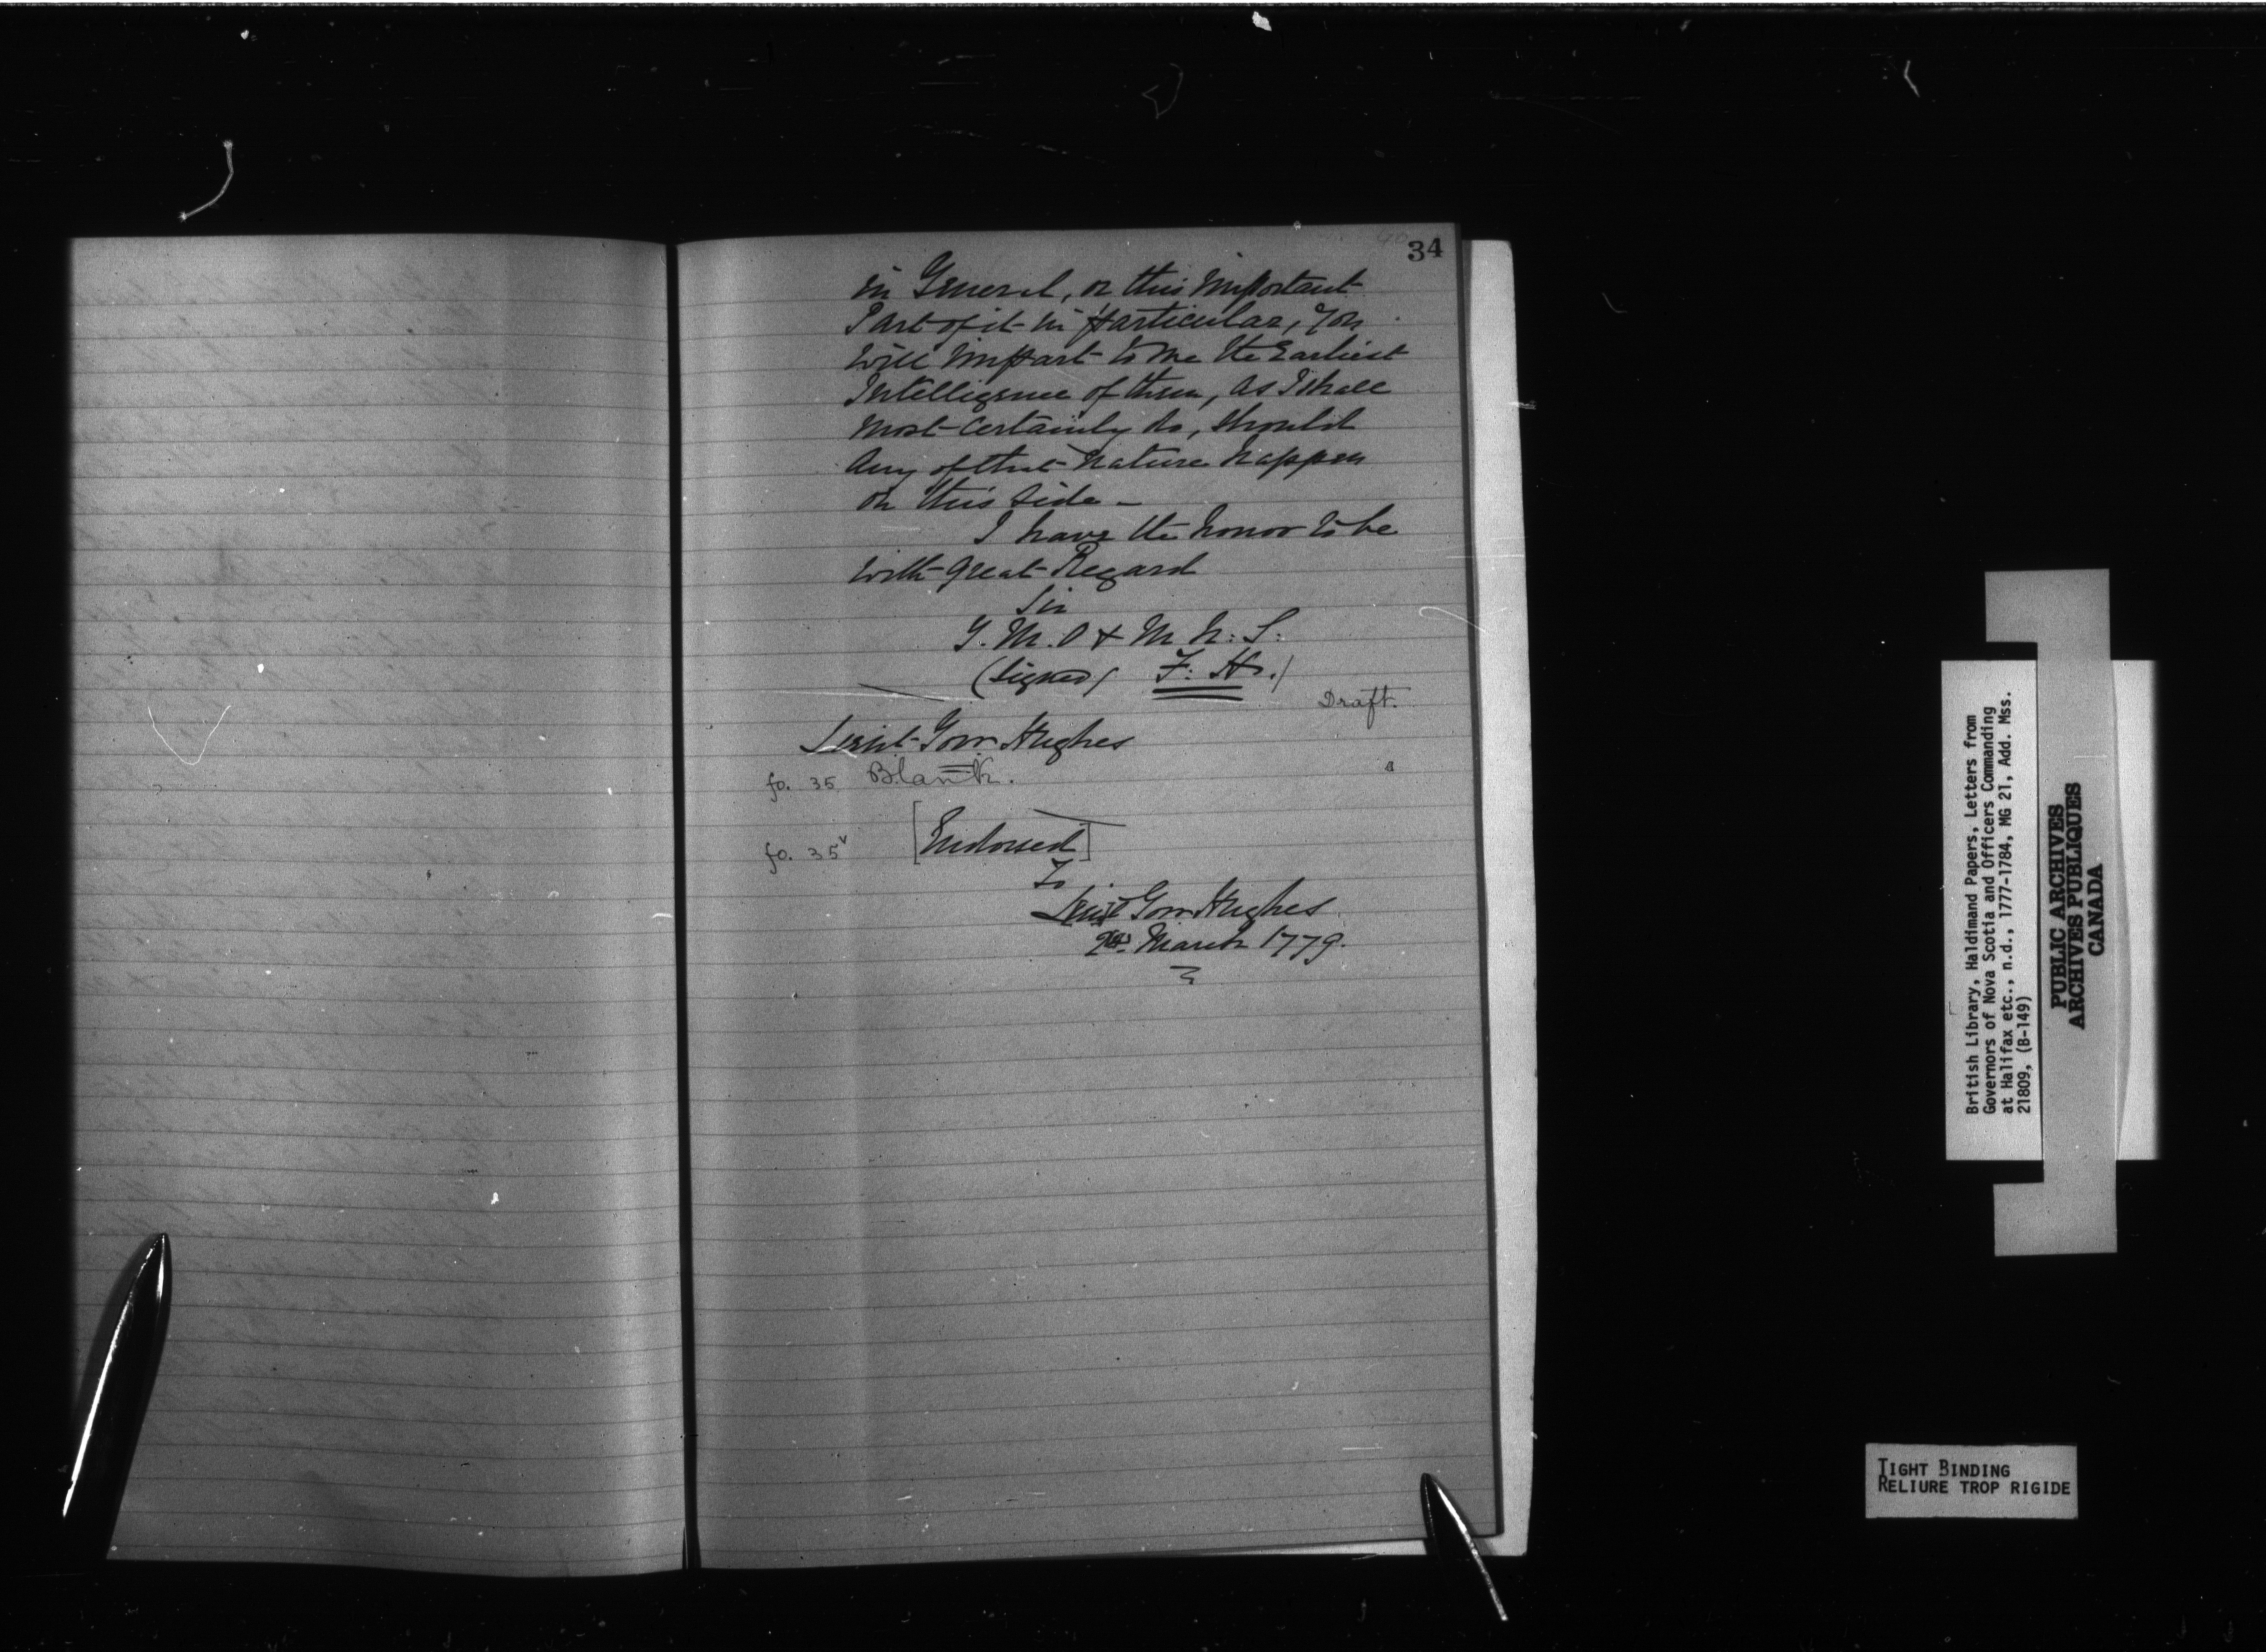 34
in General, or this important
Part of it in particular, You
will impart to me the Earliest
Intelligence of them, as I shall
most certainly do, should
Any of that nature happen
on this side –
I have the honor to be
with great Regard
Sir
Y. M. O & M. h: S:
(Signed) F: H.)
Draft.
Lieut Govr Hughes
fo. 35 Blank.
fo. 35v [Endorsed]
To
Lieut Govr Hughes
March 1779.
British Library, Haldimand Papers, Letters from
Governors of Nova Scotia and Officers Commanding
at Halifax etc., n.d., 1777-1784, MG 21, Add. Mss.
21809, (B-149)
PUBLIC ARCHIVES
ARCHIVES PUBLIQUES
CANADA
TIGHT BINDING
RELIURE TROP RIGIDE